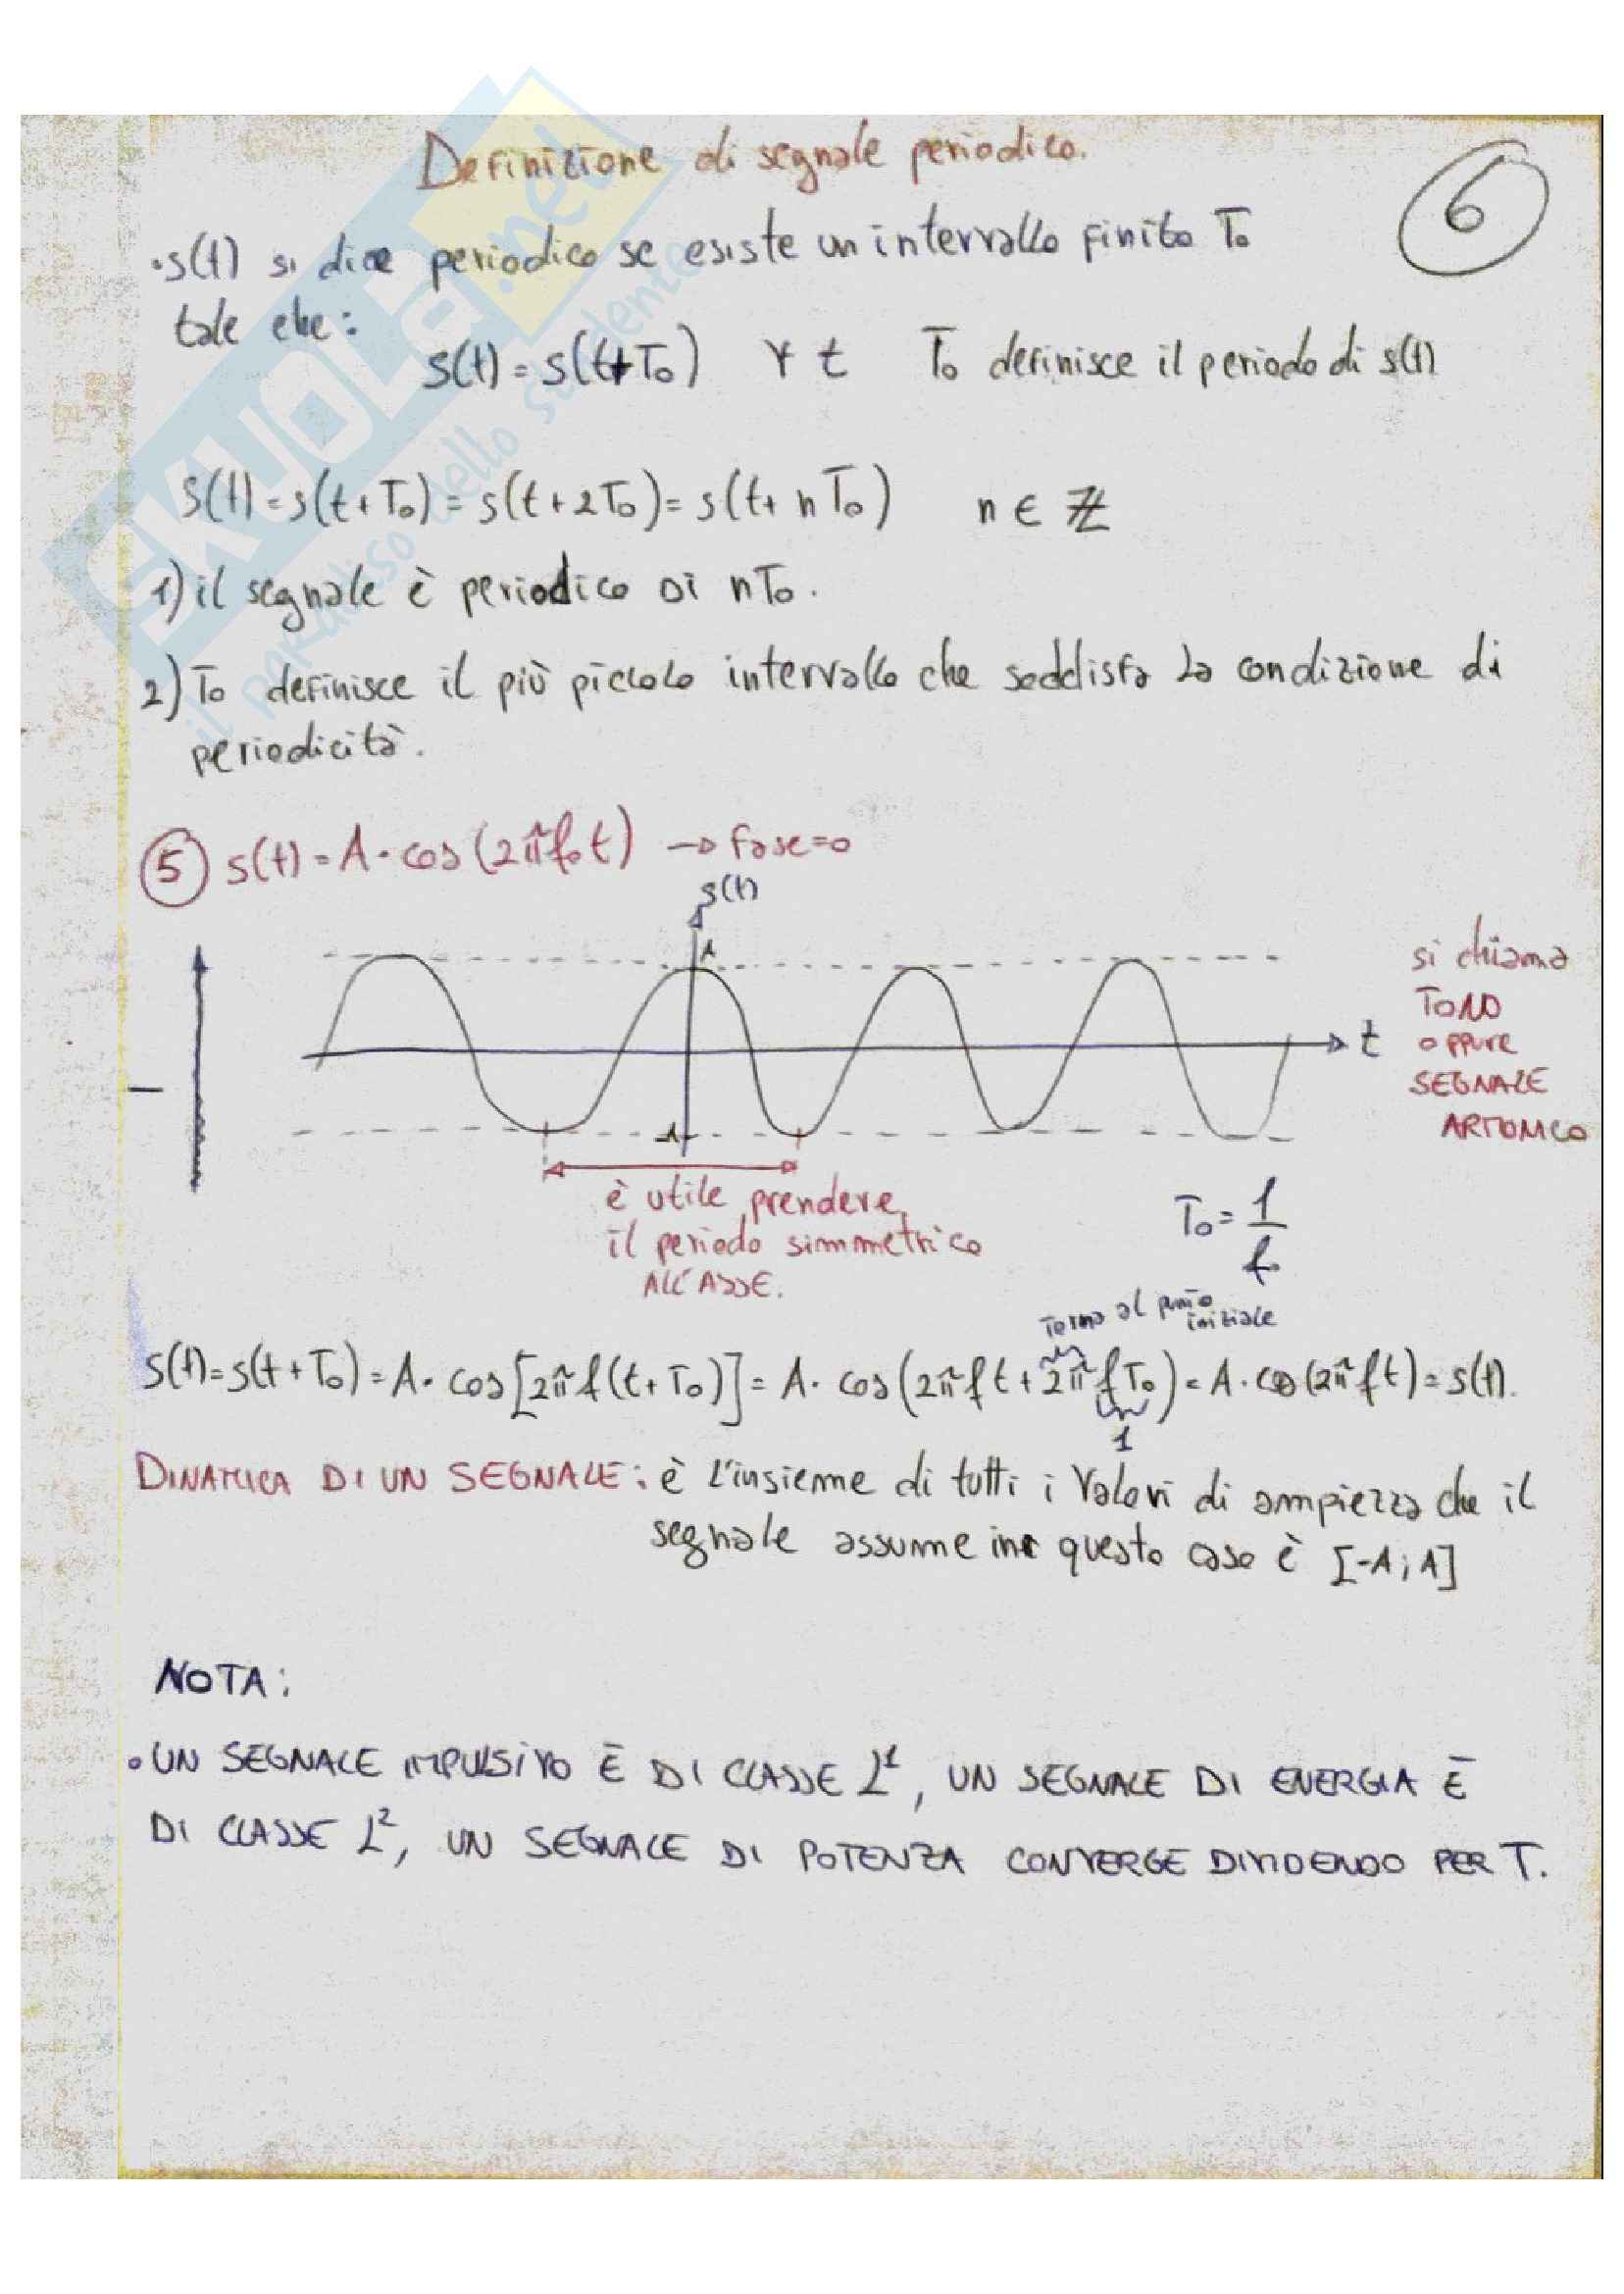 Definizione di segnale periodico.
6
• s(t) si dice periodico se esiste un intervallo finito T₀
tale che:
s(t) = s(t+T₀) ∀ t T₀ definisce il periodo di s(t)
s(t) = s(t+T₀) = s(t+2T₀) = s(t+nT₀) n ∈ ℤ
1) il segnale è periodico di nT₀.
2) T₀ definisce il più piccolo intervallo che soddisfa la condizione di
periodicità.
5 s(t) = A·cos(2πf₀t) → fase=0
s(t)
1
t
-1
si chiama
TONO
oppure
SEGNALE
ARMONICO
è utile prendere
il periodo simmetrico
ALL'ASSE.
T₀ = 1/f₀
torna al punto
iniziale
s(t) = s(t+T₀) = A·cos[2πf(t+T₀)] = A·cos(2πft+2πfT₀) = A·cos(2πft) = s(t).
1
DINAMICA DI UN SEGNALE: è l'insieme di tutti i valori di ampiezza che il
segnale assume in questo caso è [-A; A]
NOTA:
• UN SEGNALE IMPULSIVO È DI CLASSE L¹, UN SEGNALE DI ENERGIA È
DI CLASSE L², UN SEGNALE DI POTENZA CONVERGE DIVIDENDO PER T.
SKUOLA.net
il paradiso dello studente